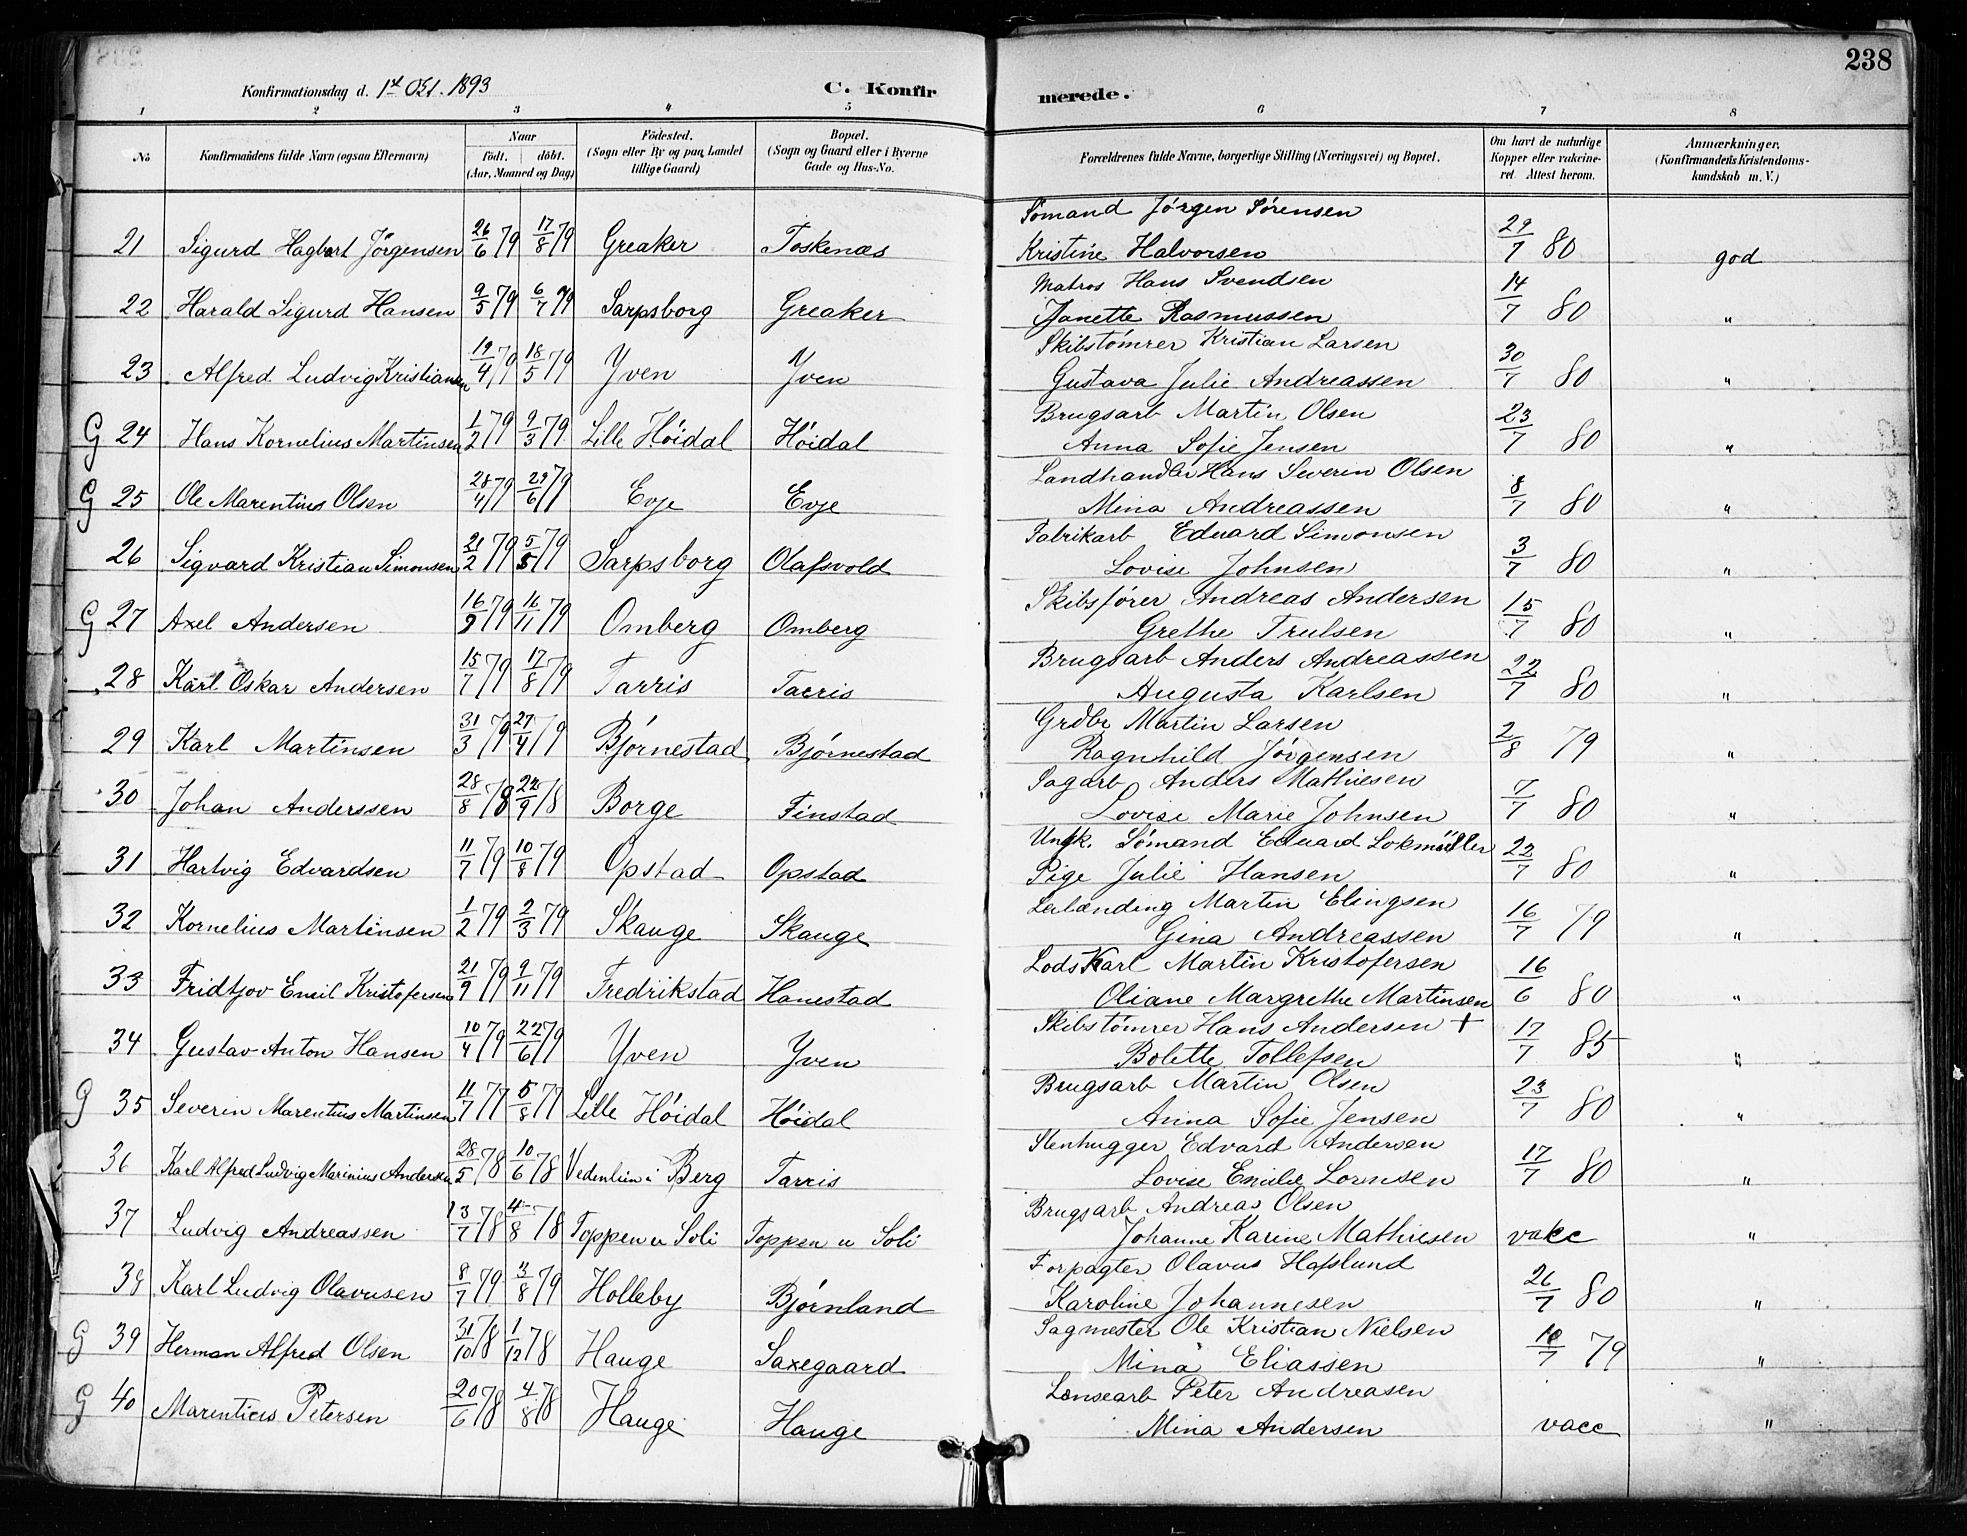 238
Konfirmationsdag d. 1st Okt. 1893 C. Konfirmerede.
1 2 3 4 5 6 7 8
No Konfirmandens fulde Navn (ogsaa Efternavn) Naar födt. döbt. (Aar, Maaned og Dag) Födested. (Sogn eller By og paa Landet tillige Gaard) Bopæl. (Sogn og Gaard eller i Byerne Gade og Hus-No. Forældrenes fulde Navne, borgerlige Stilling (Næringsvei) og Bopæl. Om havt de naturlige Kopper eller vakcineret Attest herom. Anmærkninger, (Konfirmandens Kristendomskundskab m. V.)
21 Sigurd Hagbart Jörgensen 26/6 79 17/8 79 Greaker Toskenæs Sömand Jörgen Sörensen
Kristine Halvorsen 29/7 80 god
22 Harald Sigurd Hansen 9/5 79 6/7 79 Sarpsborg Greaker Matros Hans Svendsen
Janette Rasmussen 14/7 80 "
23 Alfred Ludvig Kristiansen 19/4 79 18/5 79 Yven Yven Skibstømrer Kristian Larsen
Gustava Julie Andreassen 30/7 80 "
G 24 Hans Kornelius Martinsen 1/2 79 9/3 79 Lille Höidal Höidal Brugsarb Martin Olsen
Anna Sofie Jensen 23/7 80 "
G 25 Ole Marentius Olsen 28/4 79 29/6 79 Evje Evje Landhandler Hans Severin Olsen
Mina Andreassen 8/7 80 "
26 Sigvard Kristian Simonsen 21/2 79 5/5 79 Sarpsborg Olafsvold Fabrikarb Edvard Simonsen
Lovise Johnsen 3/7 80 "
G 27 Axel Andersen 16/9 79 16/11 79 Omberg Omberg Skibsfører Andreas Andersen
Grethe Trulsen 15/7 80 "
28 Karl Oskar Andersen 15/7 79 17/8 79 Tarris Tarris Brugsarb Anders Andreassen
Augusta Karlsen 22/7 80 "
29 Karl Martinsen 31/3 79 27/4 79 Björnestad Björnestad Grdbr Martin Larsen
Ragnhild Jörgensen 2/8 79 "
30 Johan Anderssen 28/8 78 22/9 78 Borge Finstad Sagarb Anders Mathiesen
Lovise Marie Johnsen 7/7 80 "
31 Hartvig Edvardsen 11/7 79 10/8 79 Opstad Opstad Ungk. Sömand Edvard Lokmöller
Pige Julie Hansen 22/7 80 "
32 Kornelius Martinsen 1/2 79 2/3 79 Skauge Skauge Leilænding Martin Elingsen
Gina Andreassen 16/7 79 "
33 Fridtjov Emil Kristofersen 21/9 79 9/11 79 Fredrikstad Hanestad Lods Karl Martin Kristofersen
Oliane Margrethe Martinsen 16/6 80 "
34 Gustav Anton Hansen 10/4 79 22/6 79 Yven Yven Skibstømrer Hans Andersen +
Bolette Tollefsen 17/7 85 "
G 35 Severin Marentius Martinsen 11/7 77 5/8 77 Lille Höidal Höidal Brugsarb Martin Olsen
Anna Sofie Jensen 23/7 80 "
36 Karl Alfred Ludvig Marinius Andersen 28/5 78 10/6 78 Vedenlien i Berg Tarris Stenhugger Edvard Andersen
Lovise Emilie Lorensen 17/7 80 "
37 Ludvig Andreassen 13/7 78 4/8 78 Toppen u Soli Toppen u Soli Brugsarb Andreas Olsen
Johanne Karine Mathiesen vakc "
38 Karl Ludvig Olavusen 8/7 79 3/8 79 Holleby Björnland Forpagter Olavus Hafslund
Karoline Johannesen 26/7 80 "
G 39 Herman Alfred Olsen 31/10 78 1/12 78 Hauge Saxegaard Sagmester Ole Kristian Nielsen
Mina Eliassen 10/7 79 "
G 40 Marentius Petersen 20/6 78 4/8 78 Hauge Hauge Lensearb Peter Andreasen
Mina Andersen vacc "